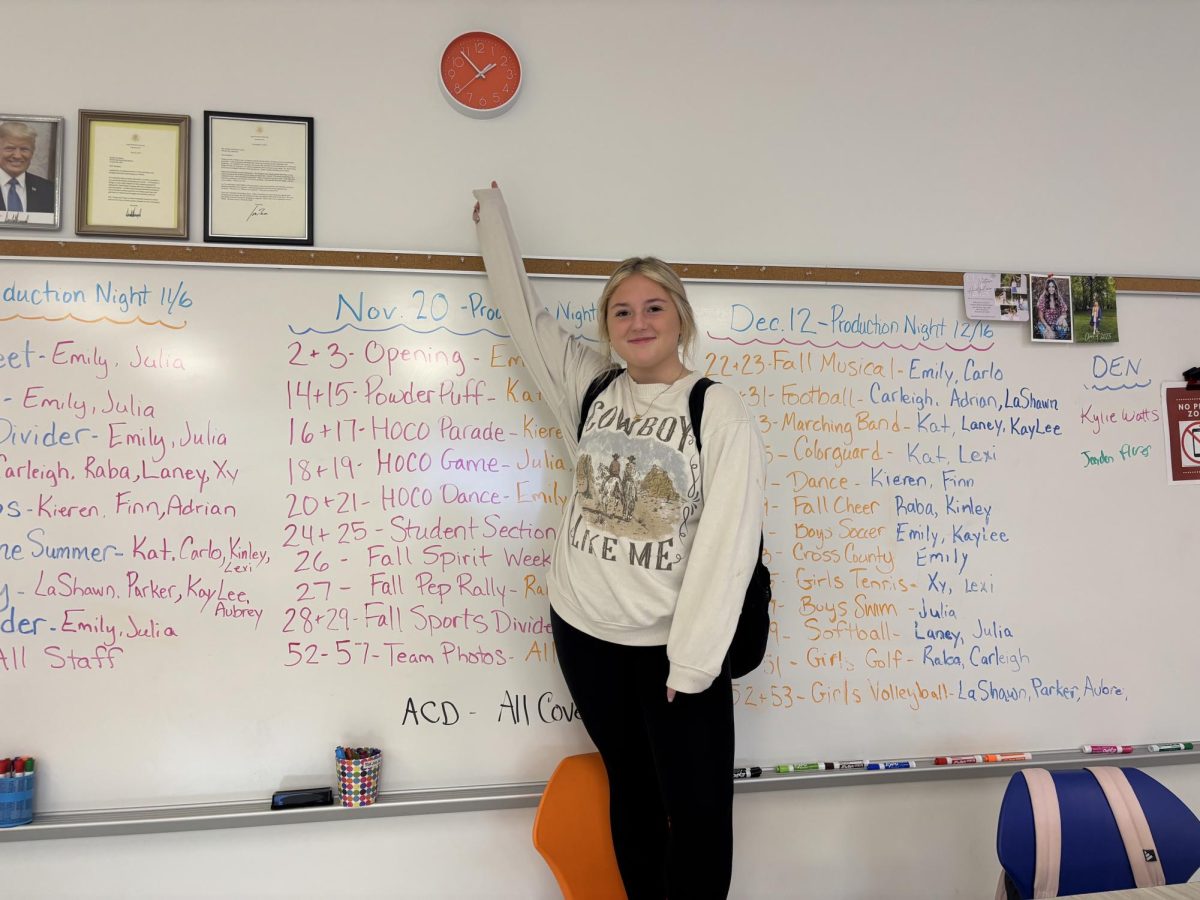 oduction Night 11/6
eet - Emily, Julia
- Emily, Julia
Divider - Emily, Julia
Carleigh, Raba, Laney, Xy
os - Kieren, Finn, Adrian
me Summer - Kat, Carlo, Kinley, Lexi
y - LaShawn, Parker, KayLee, Aubrey
der - Emily, Julia
All Staff
Nov. 20 - Pro Night
2+3 - Opening - Em
14+15 - PowderPuff - Ka
16+17 - HOCO Parade - Kiere
18+19 - HOCO Game - Julia
20+21 - HOCO Dance - Emily
24+25 - Student Section
26 - Fall Spirit Week
27 - Fall Pep Rally - Ra
28+29 - Fall Sports Divide
52-57 - Team Photos - All
ACD - All Cove
COWBOY
LIKE ME
Dec. 12 - Production Night 12/16
22+23 - Fall Musical - Emily, Carlo
31 - Football - Carleigh, Adrian, LaShawn
3 - Marching Band - Kat, Laney, KayLee
- Colorguard - Kat, Lexi
- Dance - Kieren, Finn
- Fall Cheer - Raba, Kinley
- Boys Soccer - Emily, KayLee
- Cross County - Emily
- Girls Tennis - Xy, Lexi
- Boys Swim - Julia
9 - Softball - Laney, Julia
51 - Girls Golf - Raba, Carleigh
52+53 - Girls Volleyball - LaShawn, Parker, Aubre,
DEN
Kylie Watts
NO P
ZO
12
1
2
3
4
5
6
7
8
9
10
11